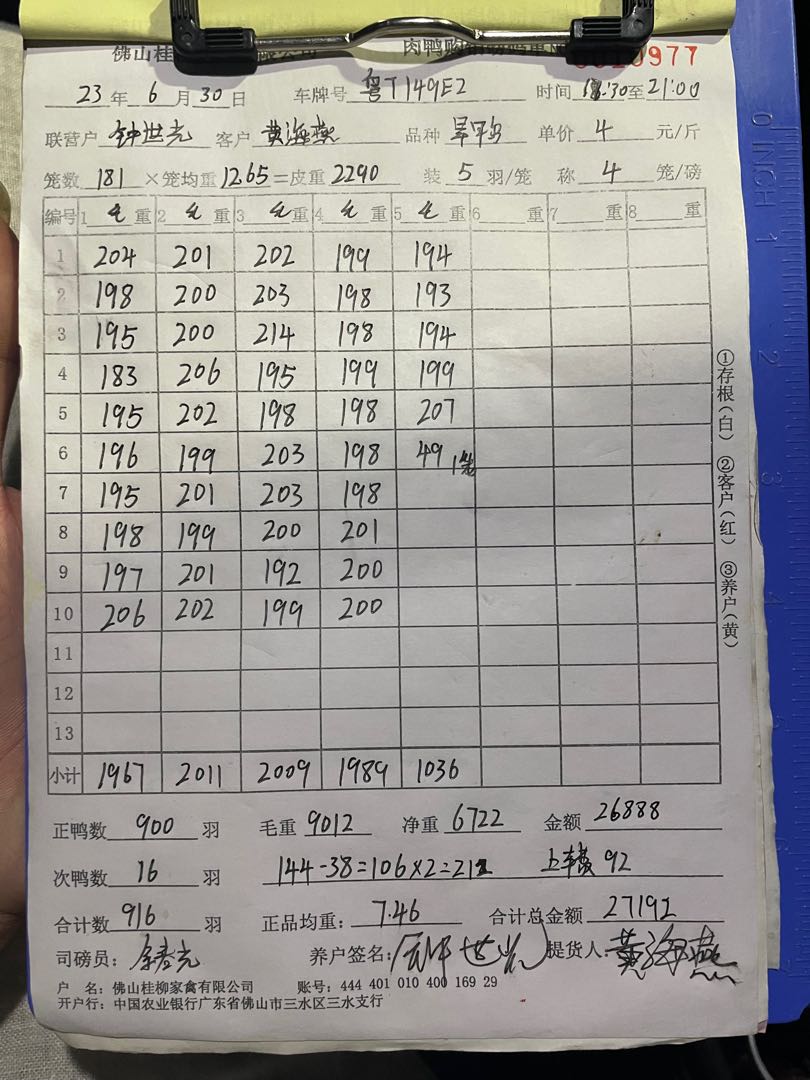 佛山桂 肉鸭购 977
23年6月30日 车牌号 粤T149E2 时间 18:30至21:00
联营户 钟世光 客户 黄海燕 品种 单价 4 元/斤
笼数 181 ×笼均重 1265 =皮重 2290 装 5 羽/笼 称 4 笼/磅
编号 1 毛 重 2 毛 重 3 毛 重 4 毛 重 5 毛 重 6 重 7 重 8 重
1 204 201 202 199 194
2 198 200 203 198 193
3 195 200 214 198 194
4 183 206 195 199 199
5 195 202 198 198 207
6 196 199 203 198 49 1笼
7 195 201 203 198
8 198 199 200 201
9 197 201 192 200
10 206 202 199 200
11
12
13
小计 1967 2011 2009 1989 1036
正鸭数 900 羽 毛重 9012 净重 6722 金额 26888
次鸭数 16 羽 144-38=106×2=212 上车费 92
合计数 916 羽 正品均重: 7.46 合计总金额 27192
司磅员: 养户签名: 钟世光 提货人: 黄海燕
户 名: 佛山桂柳家禽有限公司 账号: 444 401 010 400 169 29
开户行: 中国农业银行广东省佛山市三水区三水支行
①存根(白) ②客户(红) ③养户(黄)
0 INCH 1 2 3 4 5